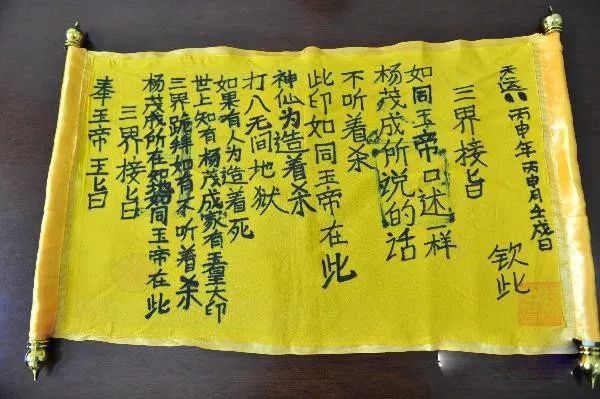 奉玉帝玉旨
三界接旨
杨茂成所在如同玉帝在此
三界跪拜如有不听着杀
世上知有杨茂成家有玉皇大印
如果有人为造着死
打八无间地狱
神仙为造着杀
此印如同玉帝在此
不听着杀
杨茂成所说的话
如同玉帝口述一样
三界接旨
钦此
天运八丙申年丙申月壬戌日